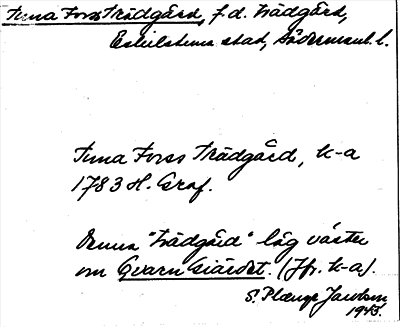 Tuna Forss Trädgård, f.d. trädgård,
Eskilstuna stad, Södermanl. l.
Tuna Forss Trädgård, K-a
1783 H. Graf.
Denna "trädgård" låg väster
om Qvarn Giärdet. (Jfr. K-a).
S. Plænge Jacobson
1945.